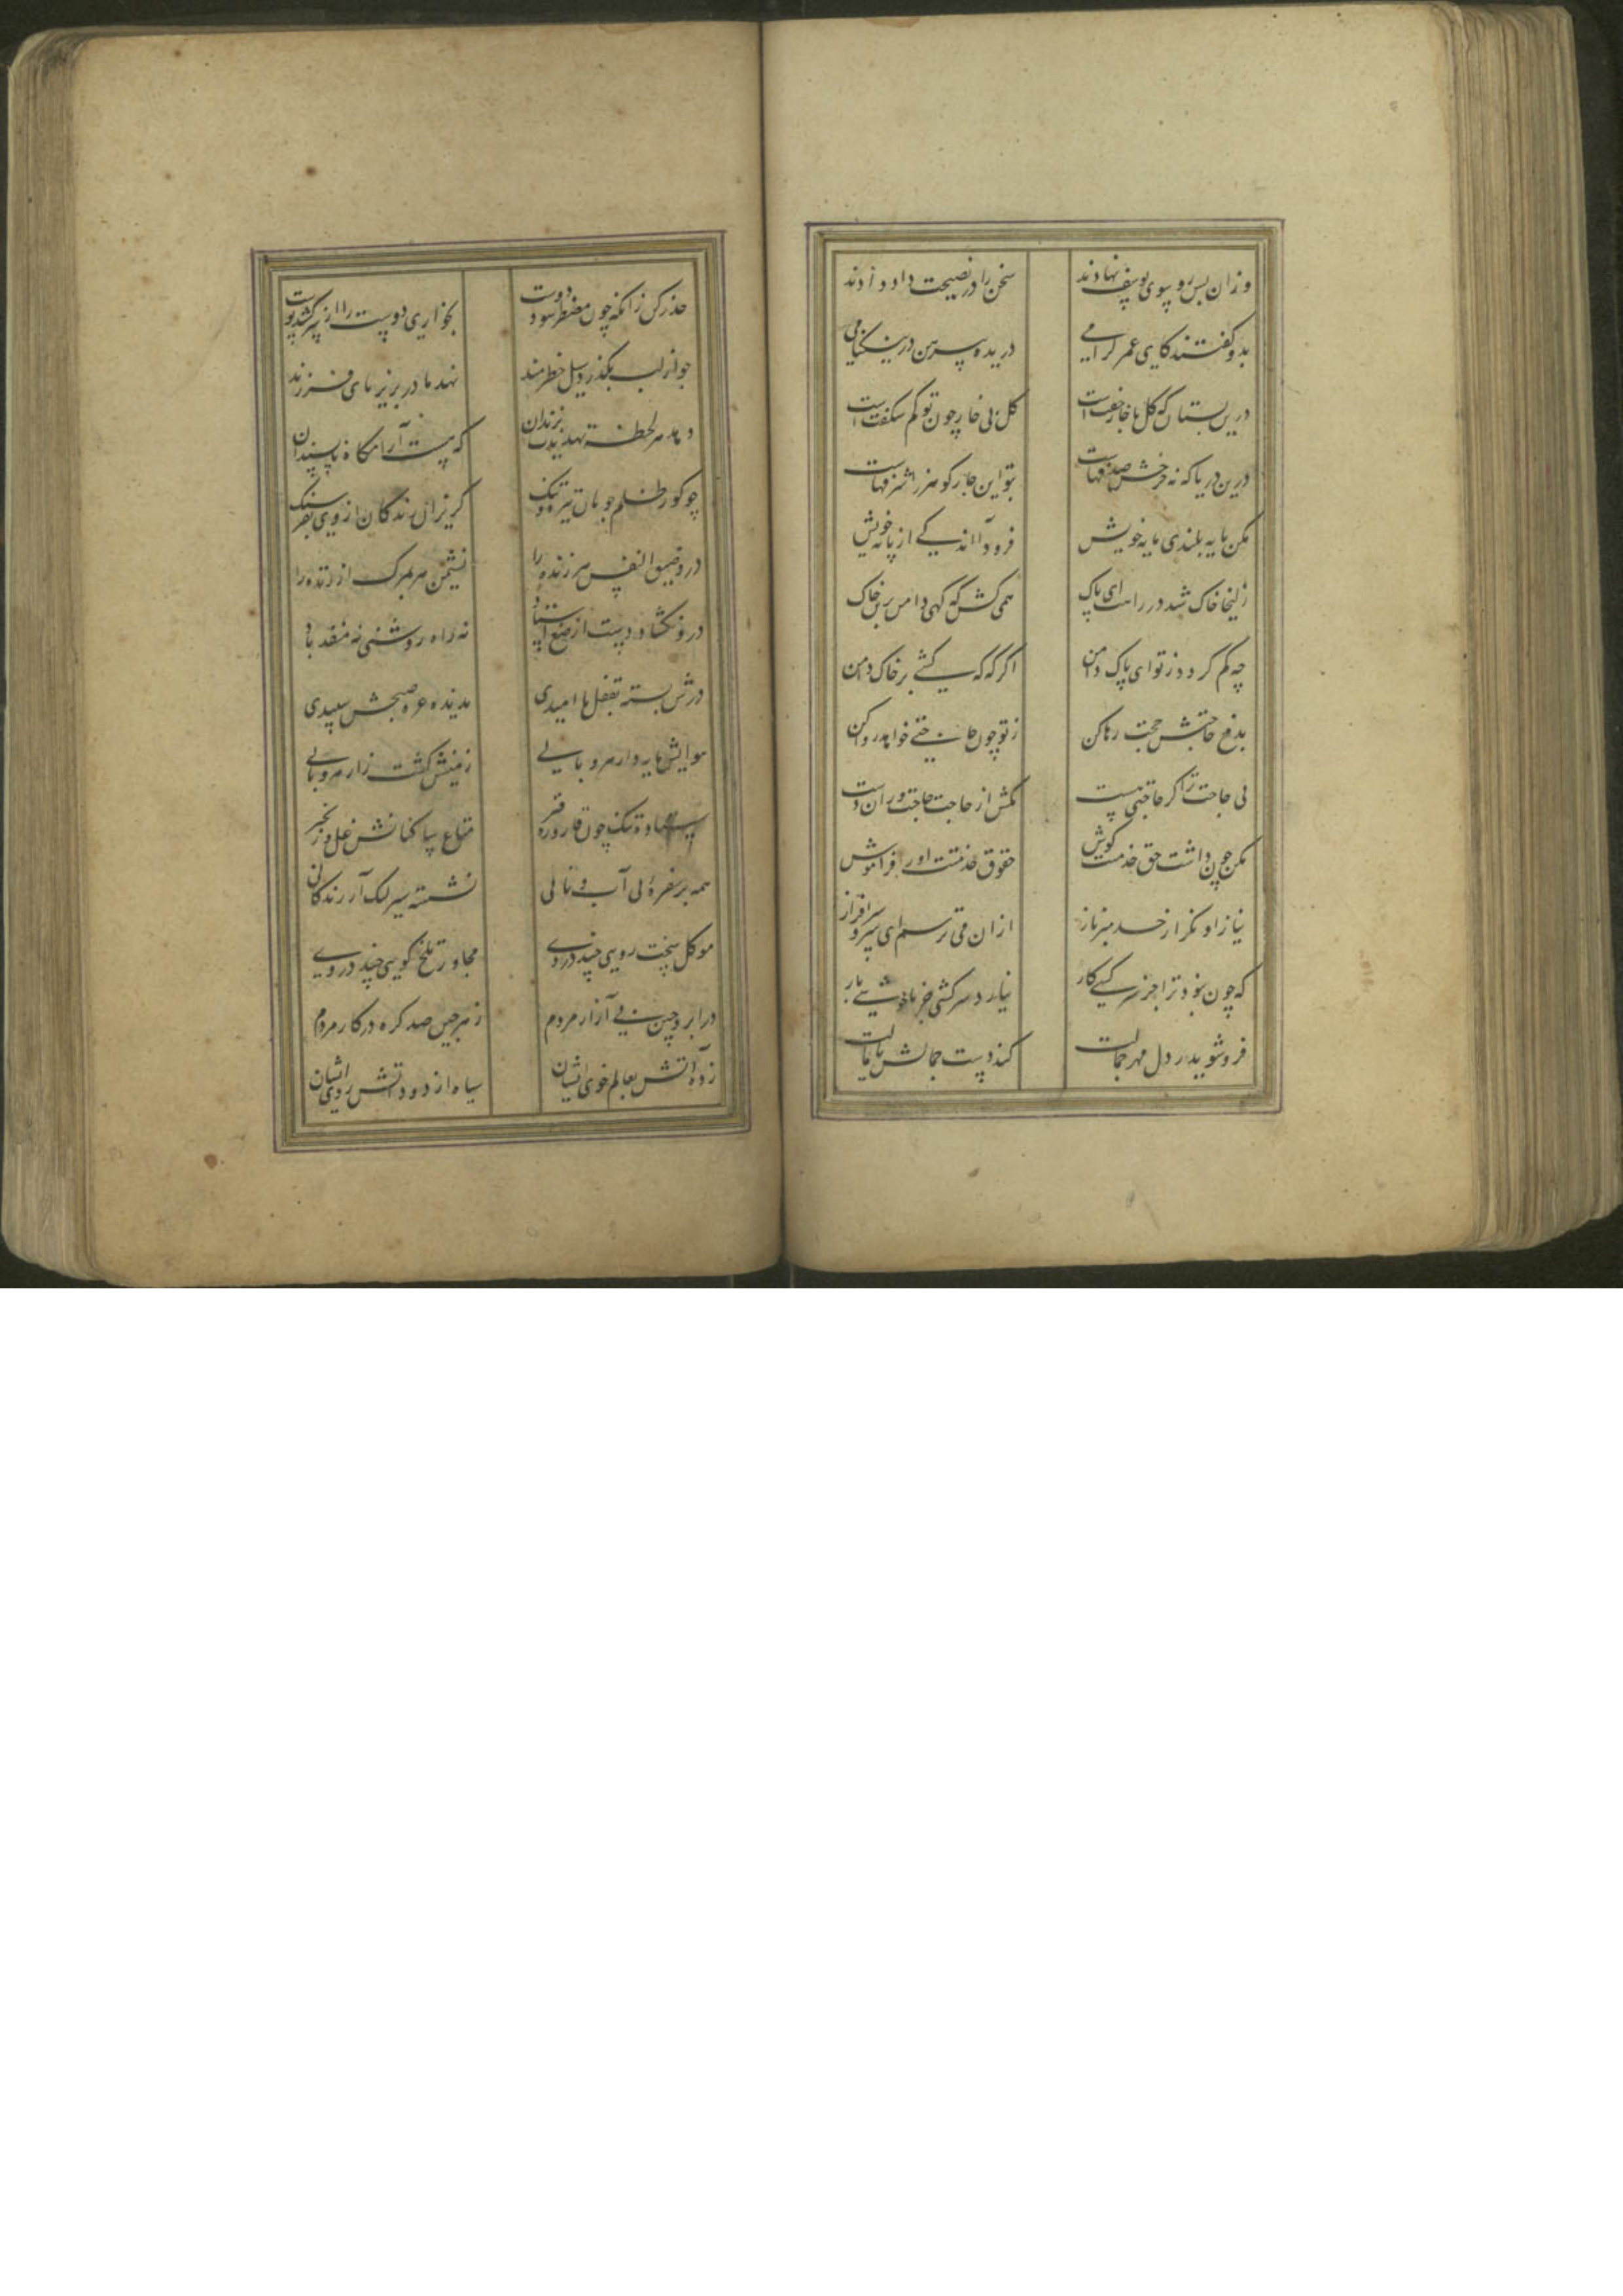 وزان پس رو بسوی یوسف نهادند سخن را در نصیحت داد دادند
بدو گفتند کای عمر گرامی دریده پیرهن در نیکنامی
درین بستان که گل با خار جفتست گل بی خار چون تو کم شکفتست
درین دریا که نه چرخش صدفهاست بتو این چار گوهر را شرفهاست
مکن پایه بلندی مایه خویش فرود آ اندکی از پایه خویش
زلیخا خاک شد در راهت ای پاک همی کش گه گهی دامن برین خاک
چه کم گردد ز تو ای پاک دامن اگر گه گه کشی بر خاک دامن
بدفع حاجتش حجت رها کن ز تو چون حاجتی خواهد روا کن
بی حاجت ترا گر حاجتی نیست مکش از حاجت حاجتوران دست
مکن چون داشت حق خدمتت گوش حقوق خدمتت او را فراموش
نیاز او نگر از حد مبر ناز ازان می ترسم ای سرو سرافراز
که چون نبود ترا جز سرکشی کار نیارد سرکشی جز ناخوشی بار
فرو شوید ز دل مهر جمالت کند دست جمالش پایمالت
حذر کن زانکه چون مضطر شود دوست بخواری دوست را از سر کشد پوست
چو از لب بگذرد سیل خطرمند نهد مادر بزیر پای فرزند
دهد هر لحظه تهدیدت بزندان که هست آرامگاه ناپسندان
چو گور ظلم جویان تیره و تنگ گریزان زندگان از وی بفرسنگ
درو ضیق النفس هر زنده را نشیمن هر بمرگ ارزنده را
درو نگشاده دست از صنع استاد نه راه روشنی نه منفذ باد
درش بسته بقفل ناامیدی ندیده غره صبحش سپیدی
هوایش مایه دار هر وبایی زمینش کشت زار هر وبالی
سیاه و تنگ چون قاروره قیر متاع پیاکنانش غل و زنجیر
همه بر سفره بی آب و نانی نشسته سیر لیک از زندگانی
موکل سخت رویی چند در وی مجاور تلخ گویی چند در وی
در ابرو چین پی آزار مردم ز هر چین صد گره در کار مردم
زده آتش بعالم خوی ایشان سیاه از دود آتش روی ایشان